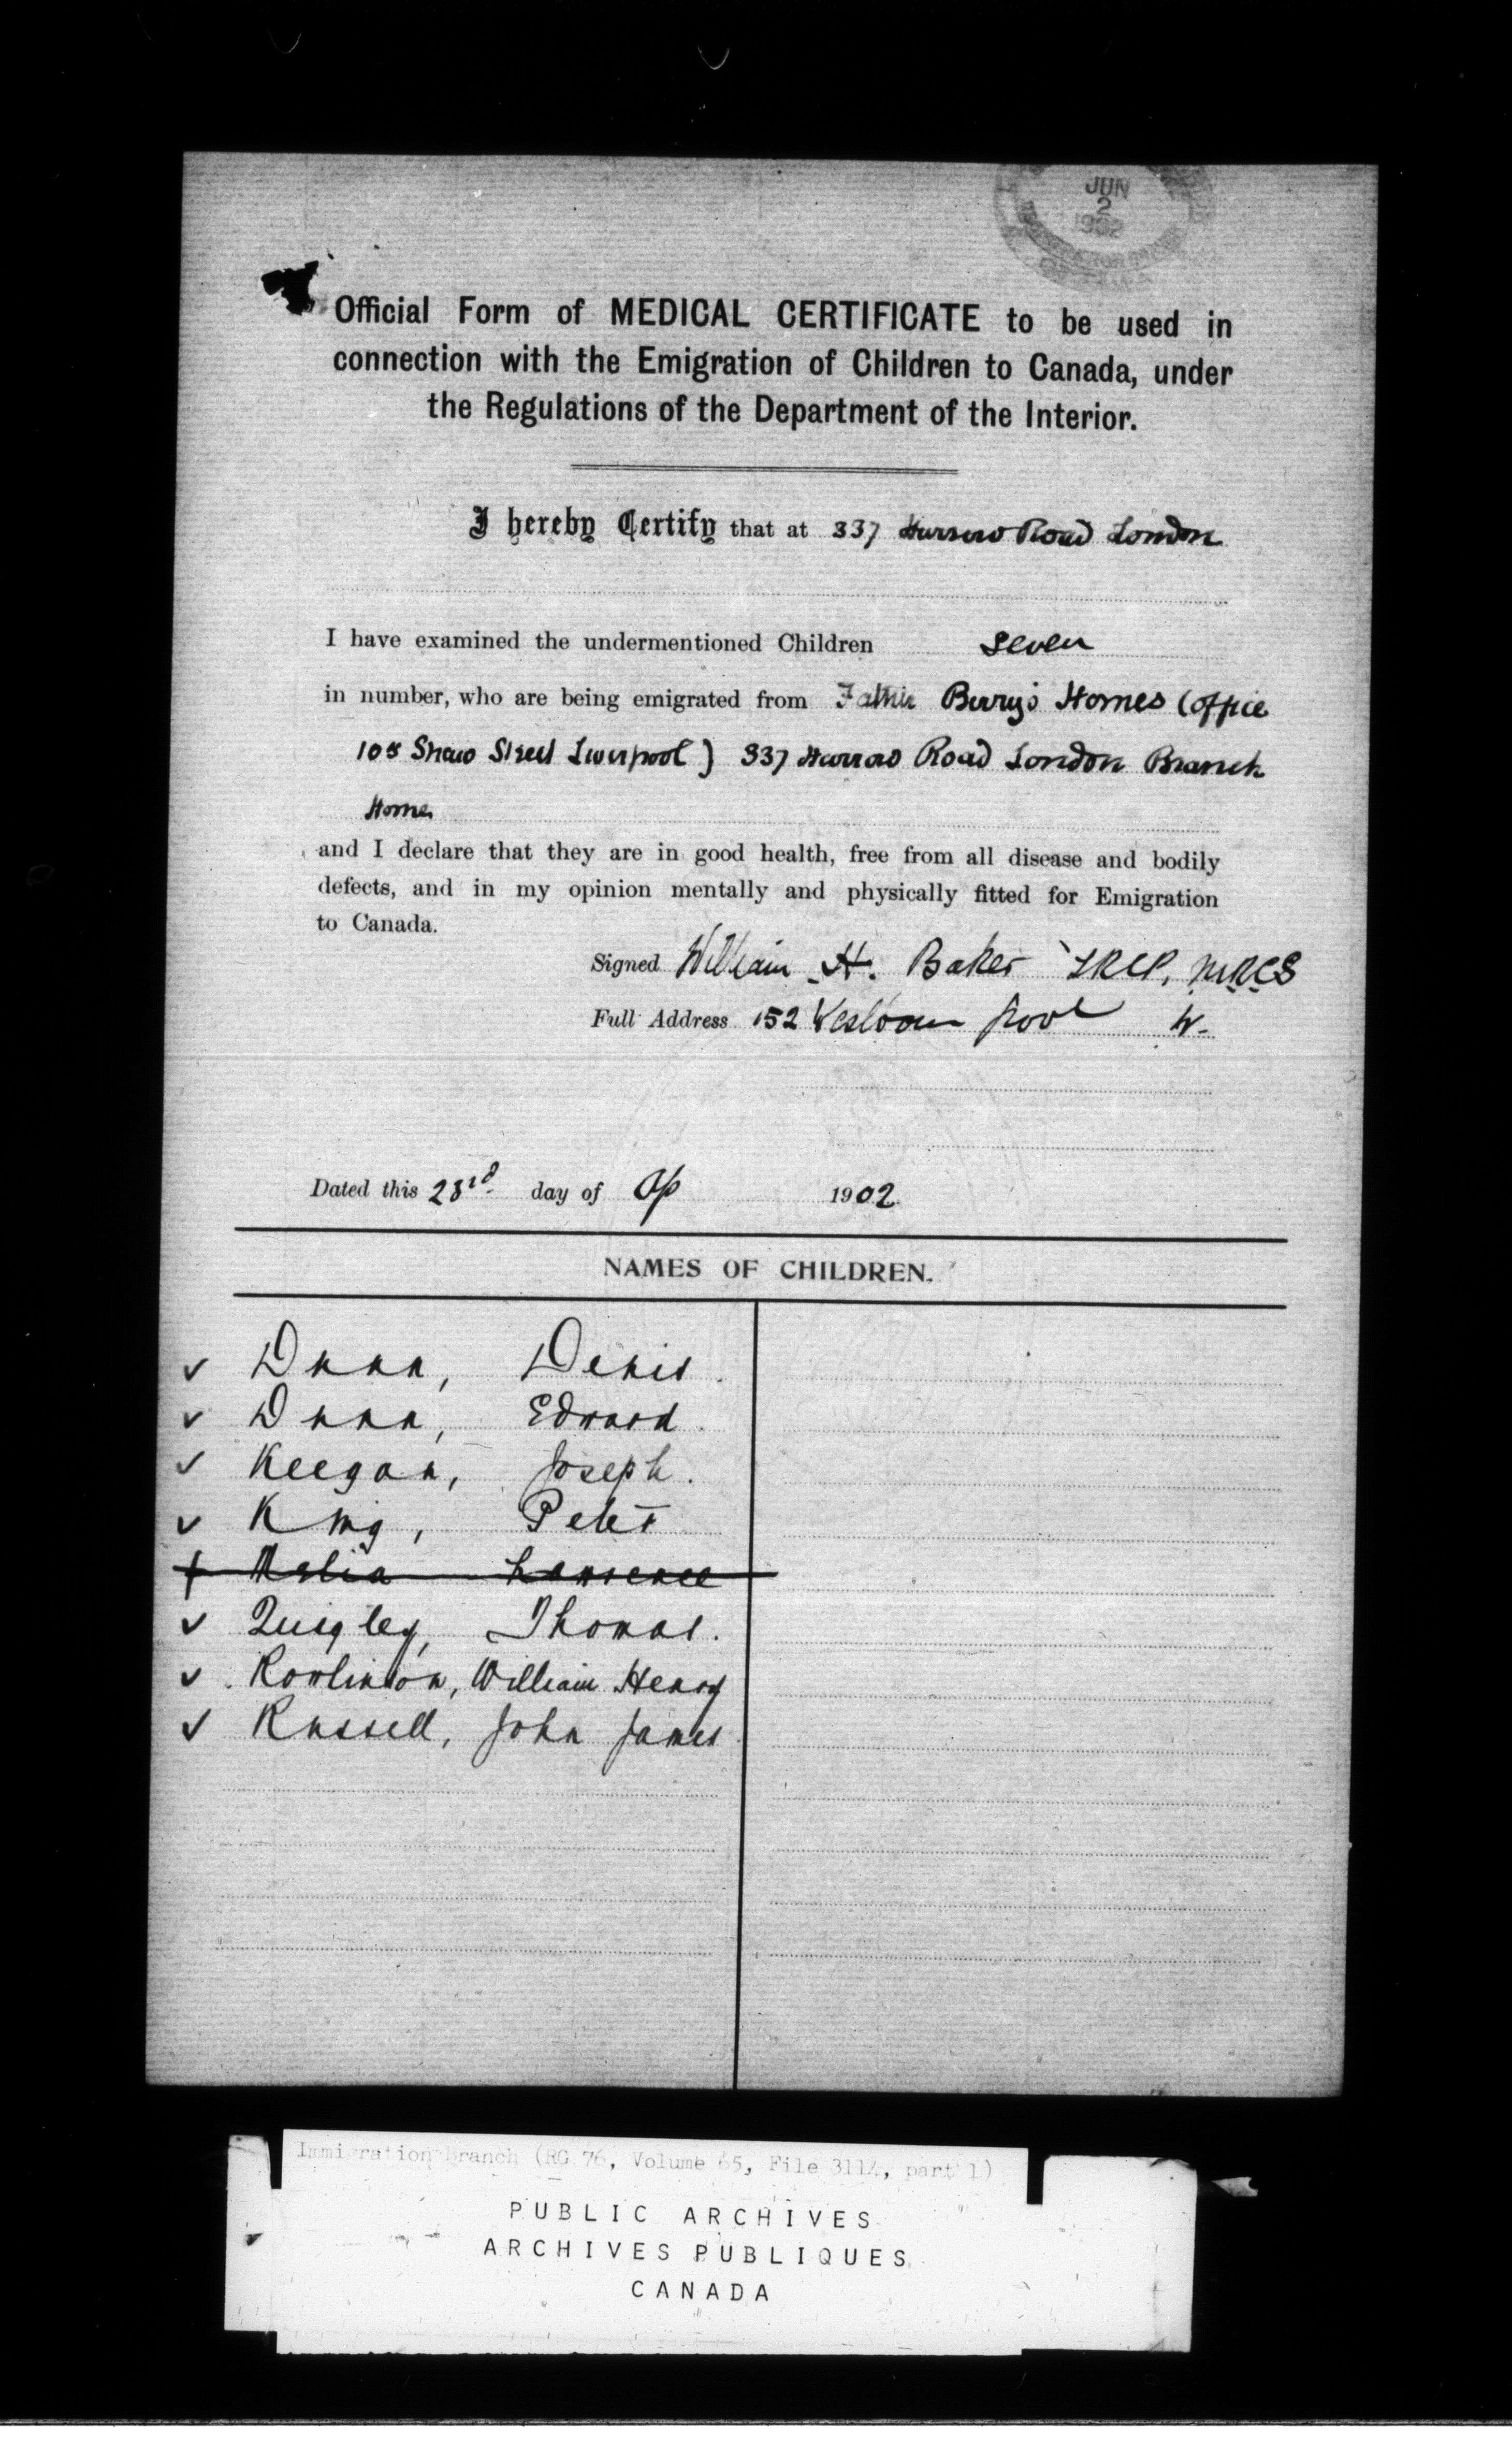 JUN
2
1902
Official Form of MEDICAL CERTIFICATE to be used in
connection with the Emigration of Children to Canada, under
the Regulations of the Department of the Interior.
I hereby Certify that at 337 Harrow Road London
I have examined the undermentioned Children seven
in number, who are being emigrated from Father Berry's Homes (office
105 Shaw Street Liverpool) 337 Harrow Road London Branch
Home
and I declare that they are in good health, free from all disease and bodily
defects, and in my opinion mentally and physically fitted for Emigration
to Canada.
Signed William H. Baker LRCP, MRCS
Full Address 152 W.
Dated this day of Ap 1902
NAMES OF CHILDREN.
Dunn, Denis.
Dunn, Edward.
Keegan, Joseph.
King, Peter
Melia Lawrence
Quigley, Thomas.
Rawlinson, William Henry
Russell, John James
Immigration Branch (RG 76, Volume 65, File 3114, part 1)
PUBLIC ARCHIVES
ARCHIVES PUBLIQUES
CANADA